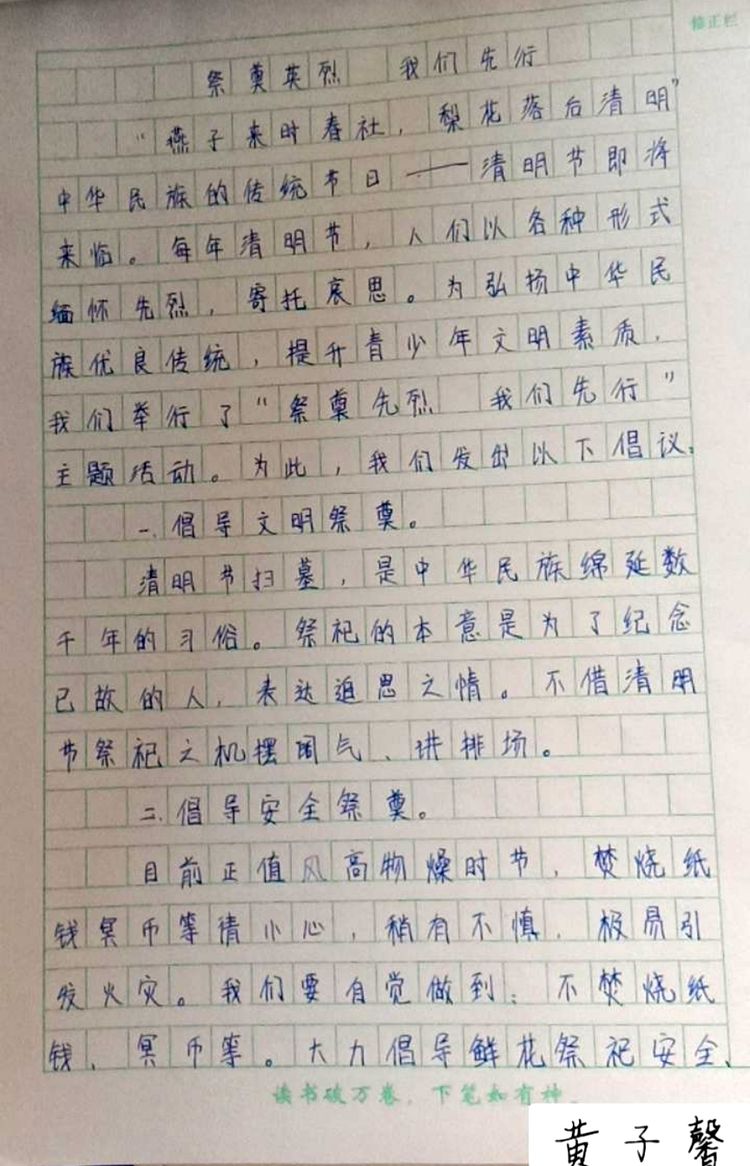 修正栏
祭奠英烈 我们先行
“燕子来时春社，梨花落后清明”
中华民族的传统节日——清明节即将
来临。每年清明节，人们以各种形式
缅怀先烈，寄托哀思。为弘扬中华民
族优良传统，提升青少年文明素质，
我们举行了“祭奠先烈 我们先行”
主题活动。为此，我们发出以下倡议：
一、倡导文明祭奠。
清明节扫墓，是中华民族绵延数
千年的习俗。祭祀的本意是为了纪念
已故的人，表达追思之情。不借清明
节祭祀之机摆阔气、讲排场。
二、倡导安全祭奠。
目前正值风高物燥时节，焚烧纸
钱冥币等请小心，稍有不慎，极易引
发火灾。我们要自觉做到：不焚烧纸
钱、冥币等。大力倡导鲜花祭祀安全、
读书破万卷，下笔如有神。
黄子馨